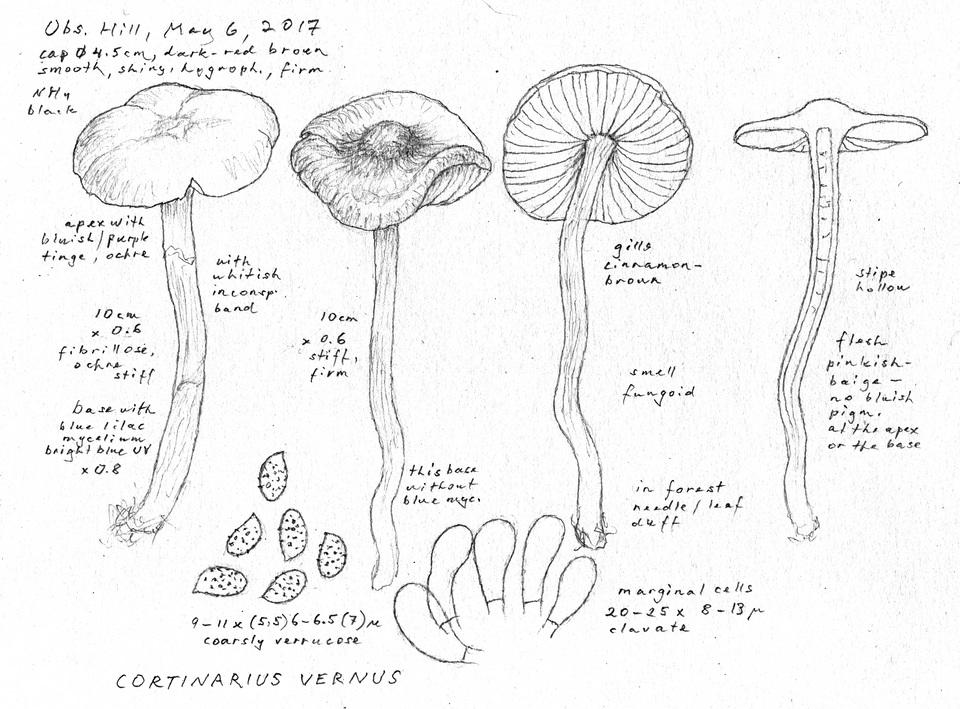 Obs. Hill, May 6, 2017
cap Ø 4.5cm, dark-red brown
smooth, shiny, hygroph., firm
NH4
black
apex with
bluish/purple
tinge, ochre
with
whitish
inconsp.
band
10cm
x 0.6
fibrillose,
ochre
stiff
base with
blue lilac
mycelium
bright blue UV
x 0.8
10cm
x 0.6
stiff,
firm
this base
without
blue myc.
gills
cinnamon-
brown
smell
fungoid
in forest
needle/leaf
duff
stipe
hollow
flesh
pinkish-
baige –
no bluish
pigm.
at the apex
or the base
9-11 x (5,5) 6-6.5 (7) µ
coarsly verrucose
marginal cells
20-25 x 8-13 µ
clavate
CORTINARIUS VERNUS